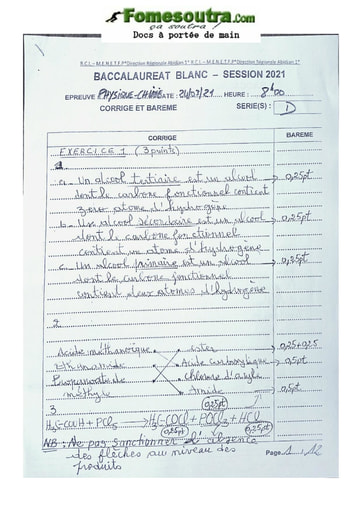 Fomesoutra.com
ça soutra !
Docs à portée de main
BACCALAUREAT BLANC – SESSION 2021
EPREUVE PHYSIQUE-CHIMIE DATE : 24/02/21 HEURE : 8h00
CORRIGE ET BAREME SERIE(S) : D
CORRIGE BAREME
EXERCICE 1 (3 points)
1.
a. Un alcool tertiaire est un alcool 0,25pt
dont le carbone fonctionnel contient
zero atome d'hydrogène
b. Un alcool secondaire est un alcool 0,25pt
dont le carbone fonctionnel
contient un atome d'hydrogène
c. Un alcool primaire est un alcool 0,25pt
dont le carbone fonctionnel
contient deux atomes d'hydrogène
2
Acide méthanoïque ester 0,25+0,25
Ethanamide Acide carboxylique 0,5pt
Propanoate de Chlorure d'acyle
méthyle Amide 0,5pt
3.
+ PCl5 → H3C-COCl + POCl3 + HCl
0,25pt 0,25pt 0,25pt
NB : Ne pas sanctionner l'absence
des flèches au niveau des
produits
Page 1 / 12